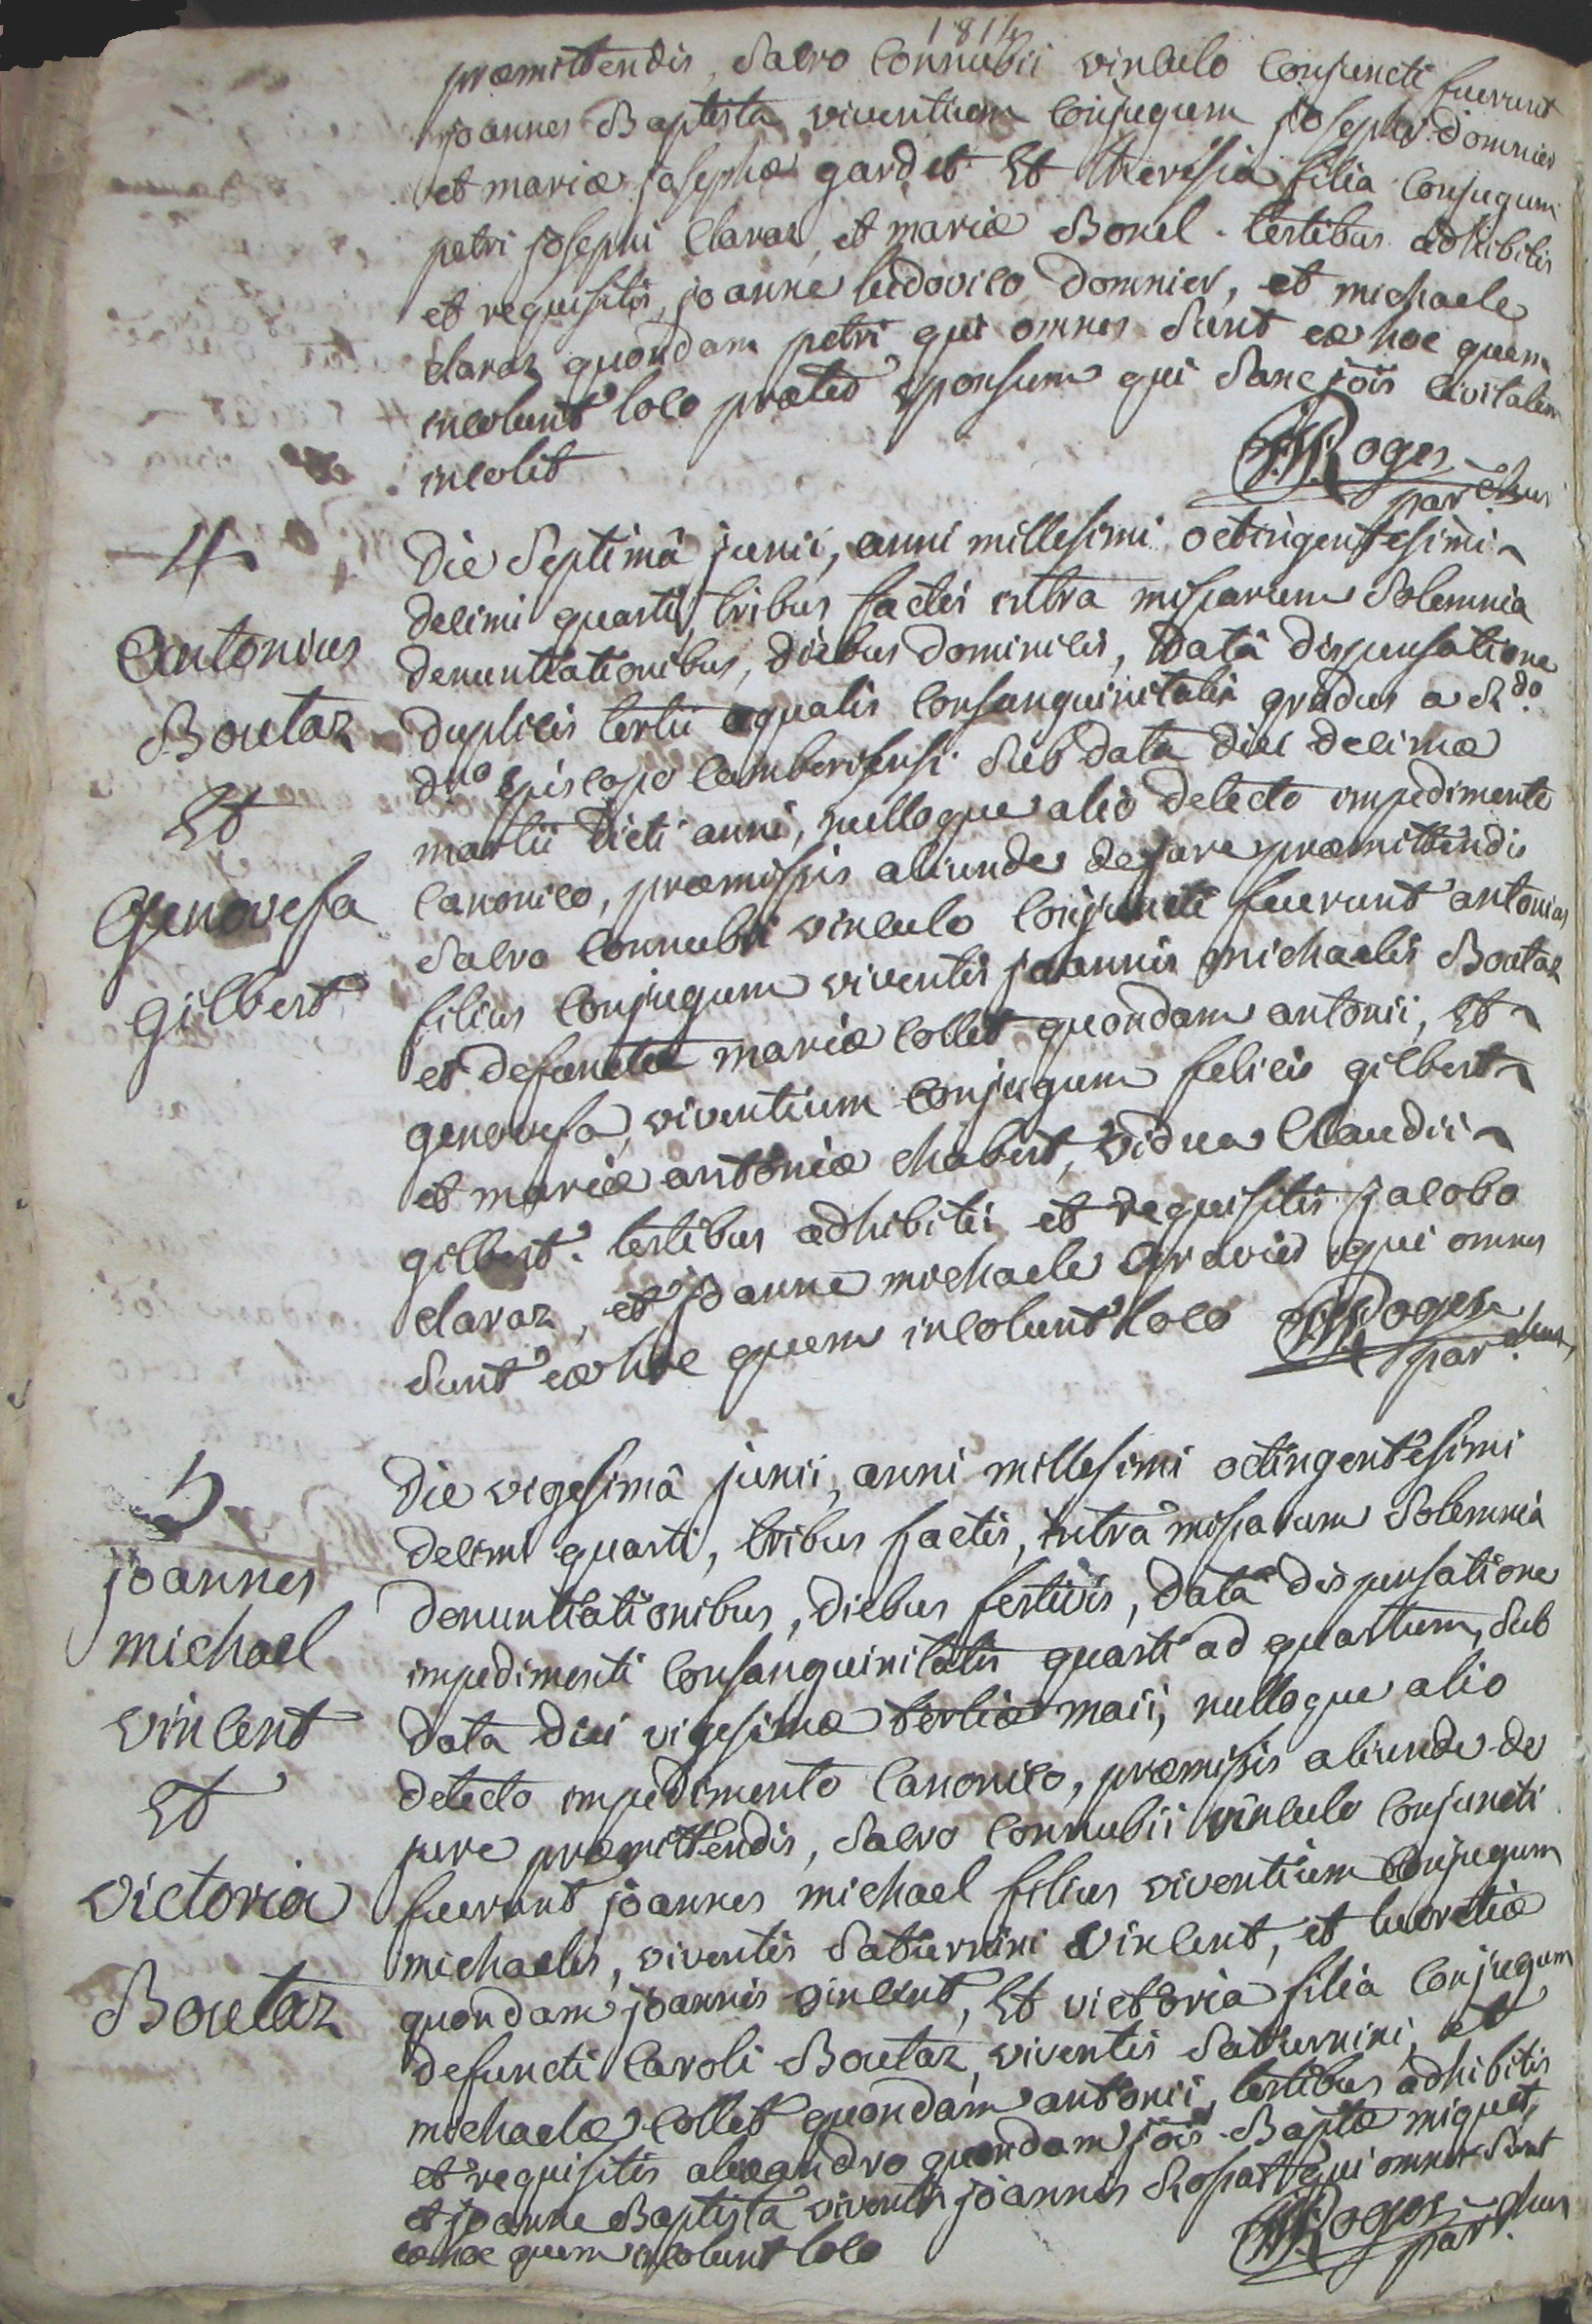 1814
præmittendis, salvo connubii vinculo conjuncti fuerunt
joannes Baptista viventium conjugum josephi domnier
et mariæ josephæ gardet Et theresia filia conjugum
petri josephi claraz et mariæ Borrel. testibus adhibitis
et requisitis, joanne ludovico domnier, et michaele
claraz quondam petri qui omnes sunt ex hoc quem
incolunt loco præter sponsum qui sanc jois civitatem
incolit
Roges
par.chus
4
Antonius
Boutaz
Et
Genovefa
gilbert
Die septimâ junii, anni millesimi octingentesimi
decimi quarti, tribus factis intra missarum solemnia
denuntiationibus, diebus dominicis, datâ dispensatione
duplicis tertii æqualis consanguinitatis gradus a R.do
dno episcopo camberiensi sub data diei decimæ
martii dicti anni, nulloque alio detecto impedimento
canonico, præmissis aliunde de jure præmittendis
salvo connubii vinculo conjuncti fuerunt antonius
filius conjugum viventis joannis michaelis Boutaz
et defunctæ mariæ collet quondam antonii, Et
genovefa, viventium conjugum felicis gilbert
et mariæ antoniæ chabert, vidua claudii
gilbert. testibus adhibitis et requisitis jacobo
claraz, et joanne michaele Gravier qui omnes
sunt ex hoc quem incolunt loco
Roges
par.chus
5
joannes
michael
vincent
Et
victoria
Boutaz
Die vigesimâ junii, anni millesimi octingentesimi
decimi quarti, tribus factis, intra missarum solemnia
denuntiationibus, diebus festivis, datâ dispensatione
impedimenti consanguinitatis quarti ad quartum, sub
data diei vigesimæ tertiæ maii, nulloque alio
detecto impedimento canonico, præmissis aliunde de
jure præmittendis, salvo connubii vinculo conjuncti
fuerunt joannes michael filius viventium conjugum
michaelis, viventis saturnini vincent, et lucretiæ
quondam joannis vincent, Et victoria filia conjugum
defuncti caroli Boutaz, viventis saturnini, et
michaelæ collet quondam antonii, testibus adhibitis
et requisitis alexandro quondam jois Baptæ miquet,
et joanne Baptista viventis joannis Rossat qui omnes sunt
ex hoc quem incolunt loco
Roges
par.chus